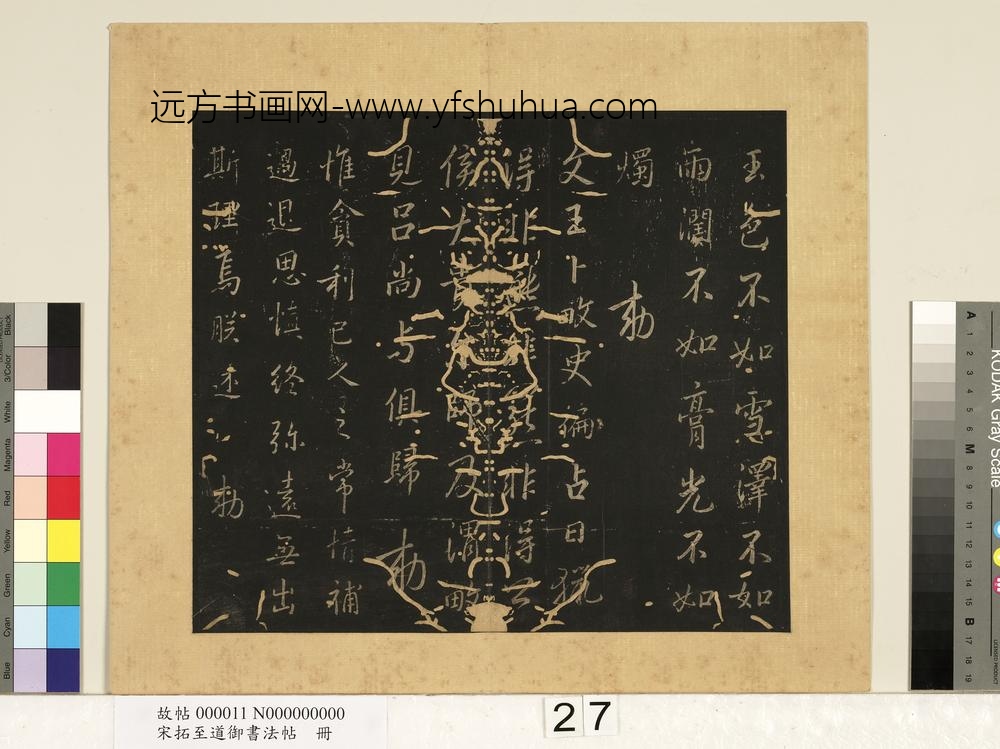 远方书画网-www.yfshuhua.com
玉色不如雪澤不如
雨瀾不如膏光不如
燭 勅
文王卜畋史徧占曰獵
得非熊非得公
侯天師及渭畋
見呂尚与俱歸 勅
惟貪利己人之常情補
過退思慎終弥遠無出
斯理焉朕述 勅
故帖 000011 N000000000
宋拓至道御書法帖 冊
27
Black
3/Color
White
Magenta
Red
Yellow
Green
Cyan
Blue
KODAK Gray Scale
A 1 2 3 4 5 6 M 8 9 10 11 12 13 14 15 B 17 18 19